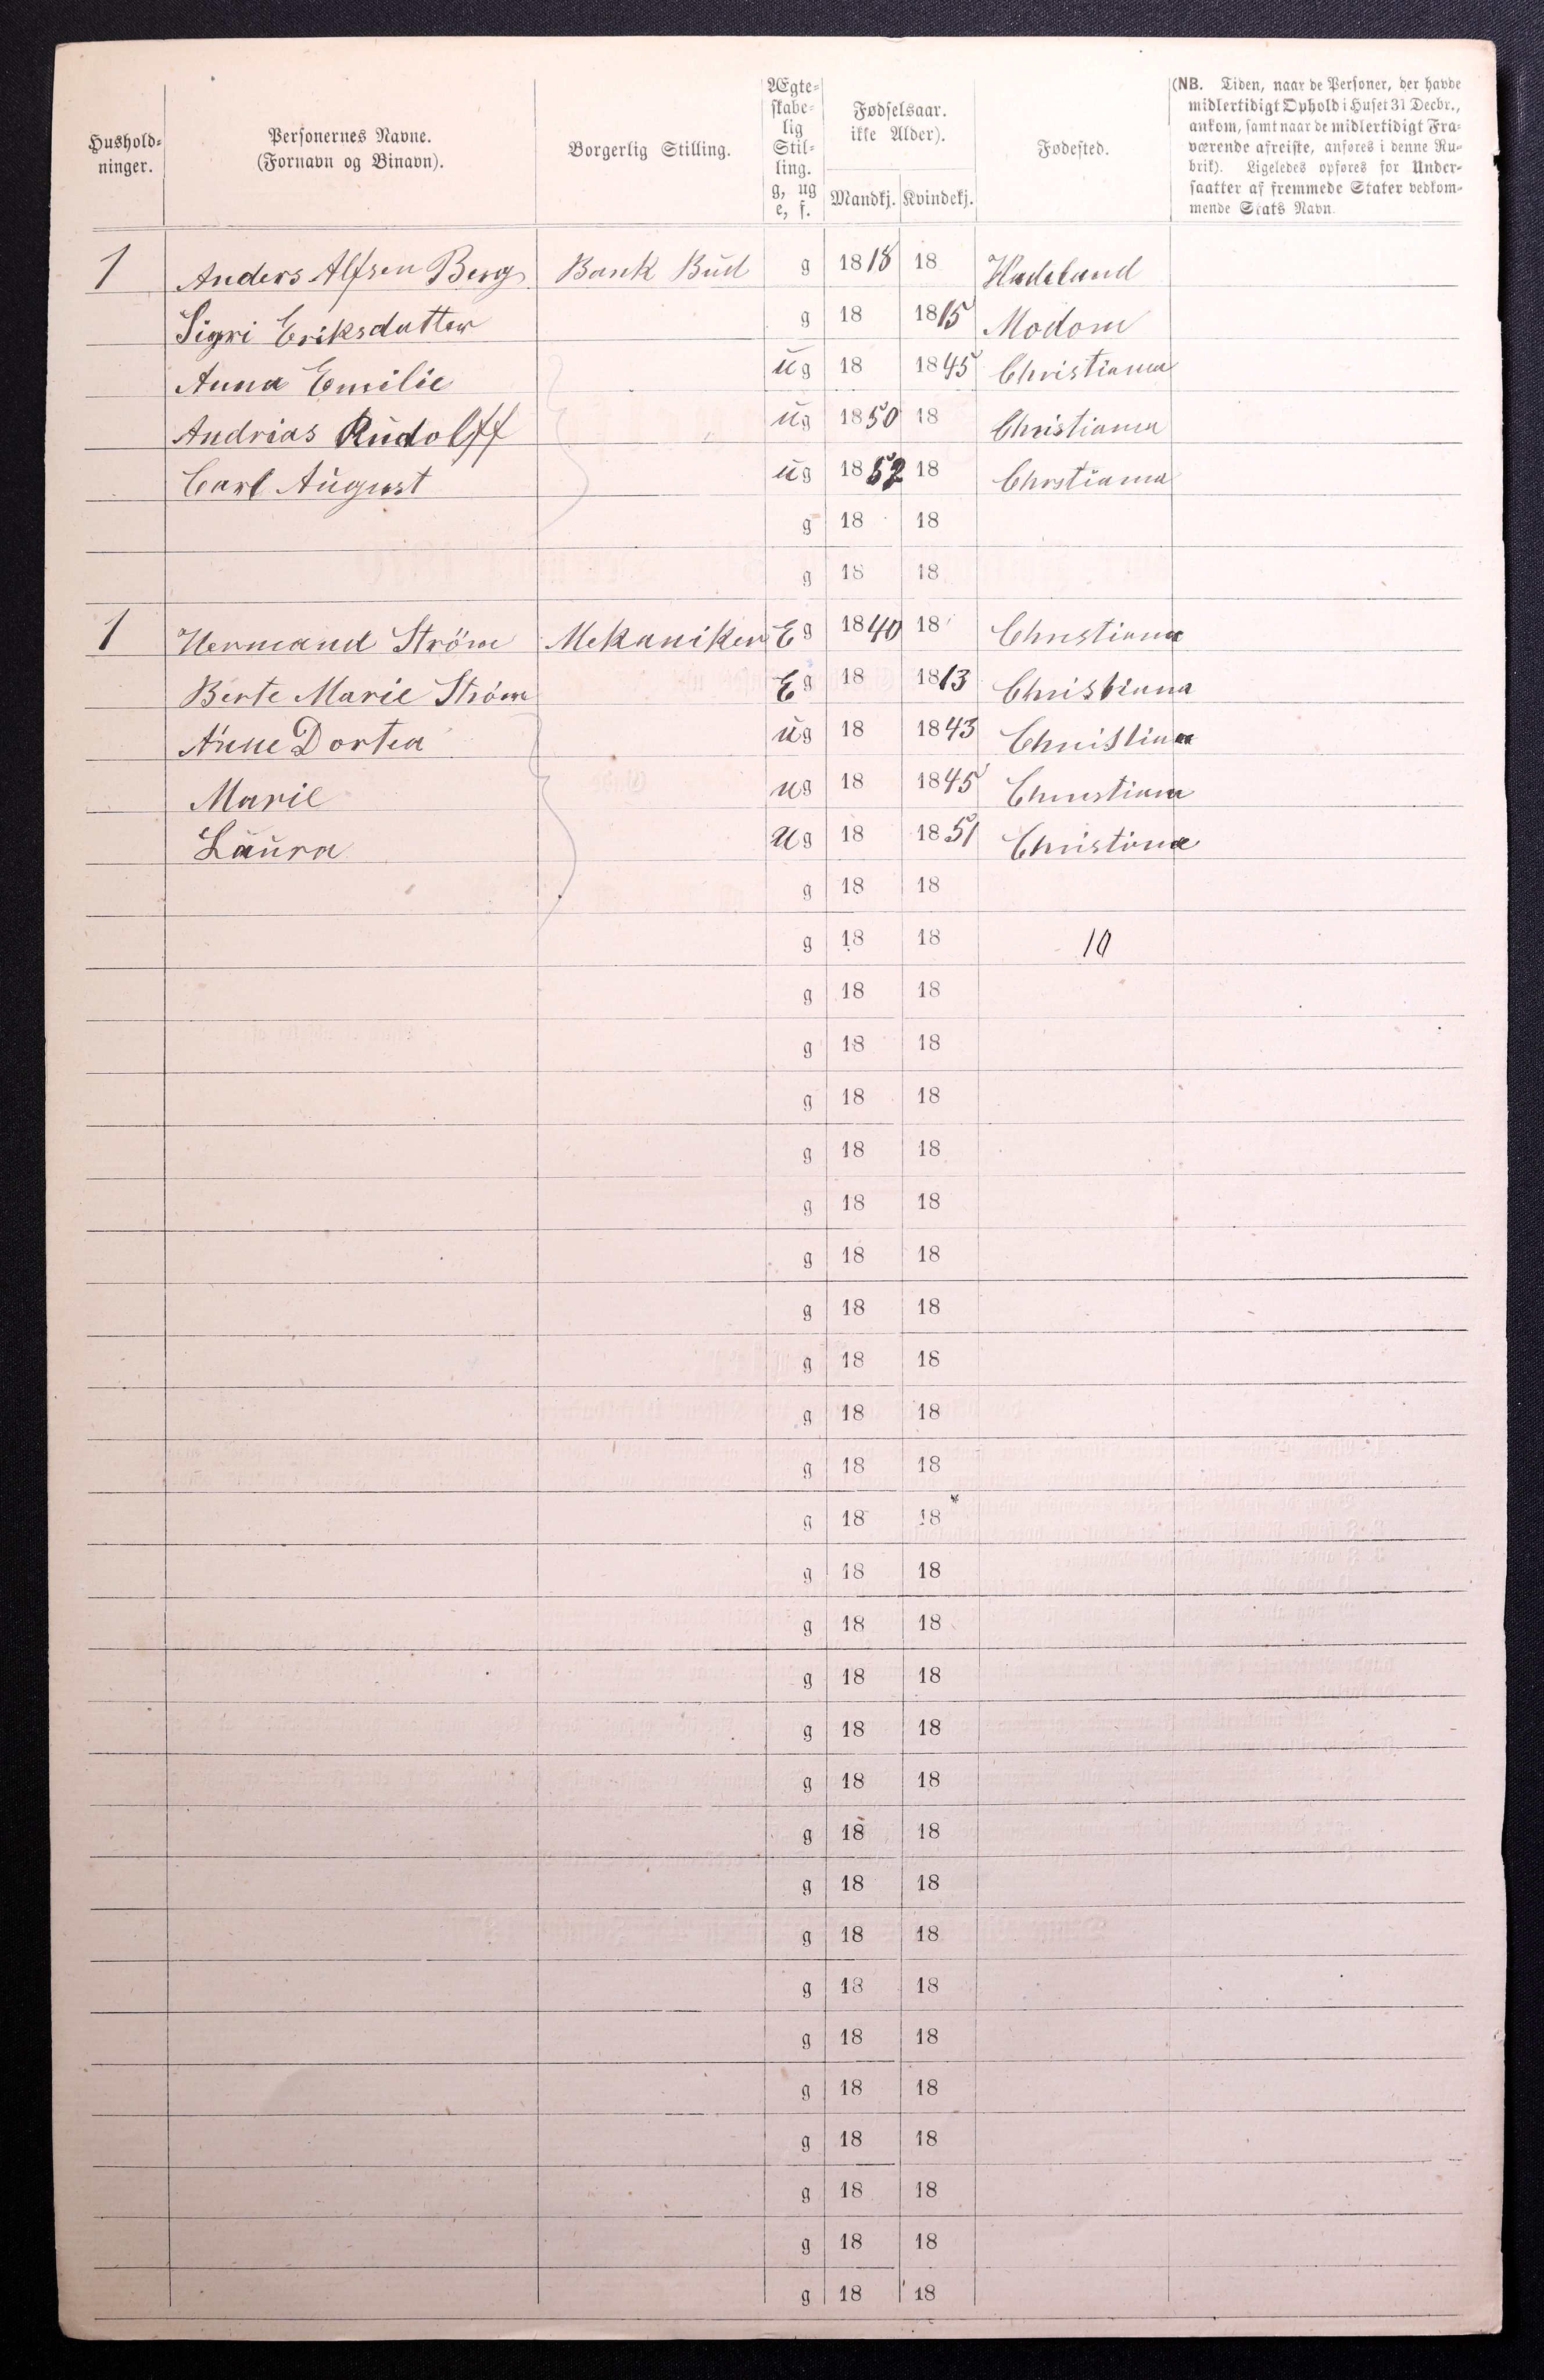 Hushold-
ninger.
Personernes Navne.
(Fornavn og Binavn).
Borgerlig Stilling.
Ægte-
skabe-
lig
Stil-
ling.
g, ug
e, f.
Fødselsaar.
ikke Alder).
Mandkj. Kvindekj.
Fødested.
(NB. Tiden, naar de Personer, der havde
midlertidigt Ophold i Huset 31 Decbr.,
ankom, samt naar de midlertidigt Fra-
værende afreiste, anføres i denne Ru-
brik). Ligeledes opføres for Under-
saatter af fremmede Stater vedkom-
mende Stats Navn.
1 Anders Alfsen Berg Bank Bud g 1818 18 Hadeland
Sigri Eriksdatter g 18 1815 Modom
Anna Emilie ug 18 1845 Christiania
Andrias Rudolff ug 1850 18 Christiania
Carl August ug 1852 18 Chrstiania
g 18 18
g 18 18
1 Hermand Ström Mekaniker Eg 1840 18 Christiania
Berte Marie Ström Eg 18 1813 Christiana
Anne Dortea ug 18 1843 Christiana
Marie ug 18 1845 Christiana
Laura ug 18 1851 Christina
g 18 18
g 18 18 10
g 18 18
g 18 18
g 18 18
g 18 18
g 18 18
g 18 18
g 18 18
g 18 18
g 18 18
g 18 18
g 18 18
g 18 18
g 18 18
g 18 18
g 18 18
g 18 18
g 18 18
g 18 18
g 18 18
g 18 18
g 18 18
g 18 18
g 18 18
g 18 18
g 18 18
g 18 18
g 18 18